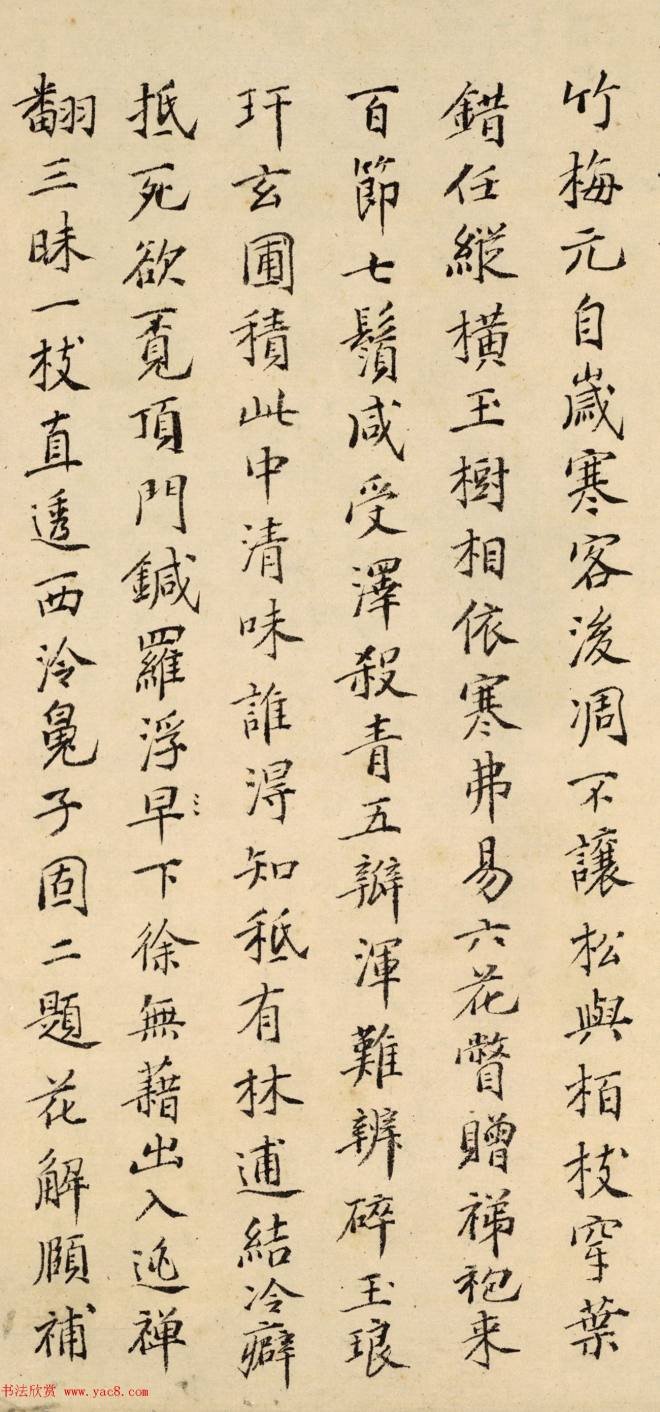 竹梅元自歲寒客後凋不讓松與栢枝穿葉
錯任縱橫玉樹相依寒弗易六花瞥贈綈袍来
百節七鬚咸受澤殺青五瓣渾難辨碎玉琅
玕玄圃積此中清味誰得知秪有林逋結冷癖
抵死欲覔頂門鍼羅浮早〻下徐無藉出入逃禅
翻三昧一枝直透西泠㲋子固二題花解頤補
书法欣赏 www.yac8.com